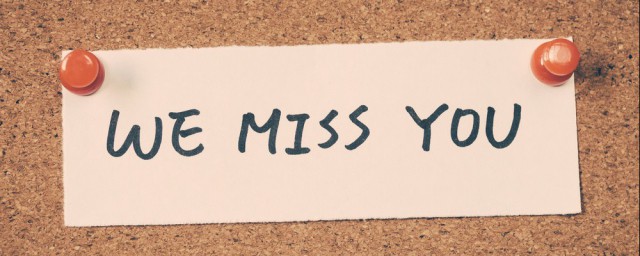 WE MISS YOU